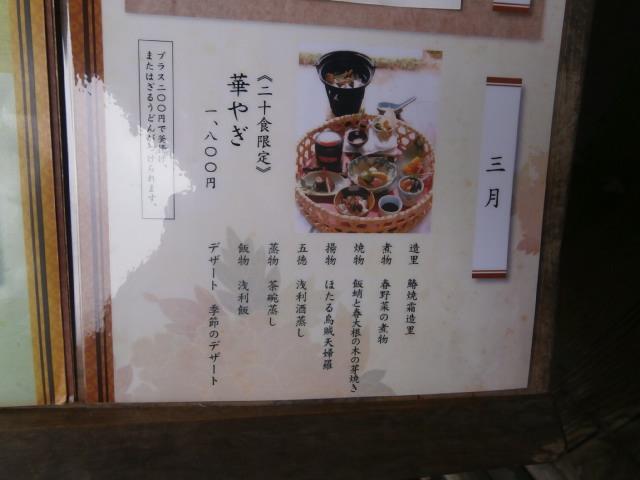 三月
《二十食限定》
華やぎ
一、八〇〇円
プラス二〇〇円で
またはざるうどんが付けられます。
造里 鰆焼霜造里
煮物 春野菜の煮物
焼物 飯蛸と春大根の木の芽焼き
揚物 ほたる烏賊天婦羅
五徳 浅利酒蒸し
蒸物 茶碗蒸し
飯物 浅利飯
デザート 季節のデザート